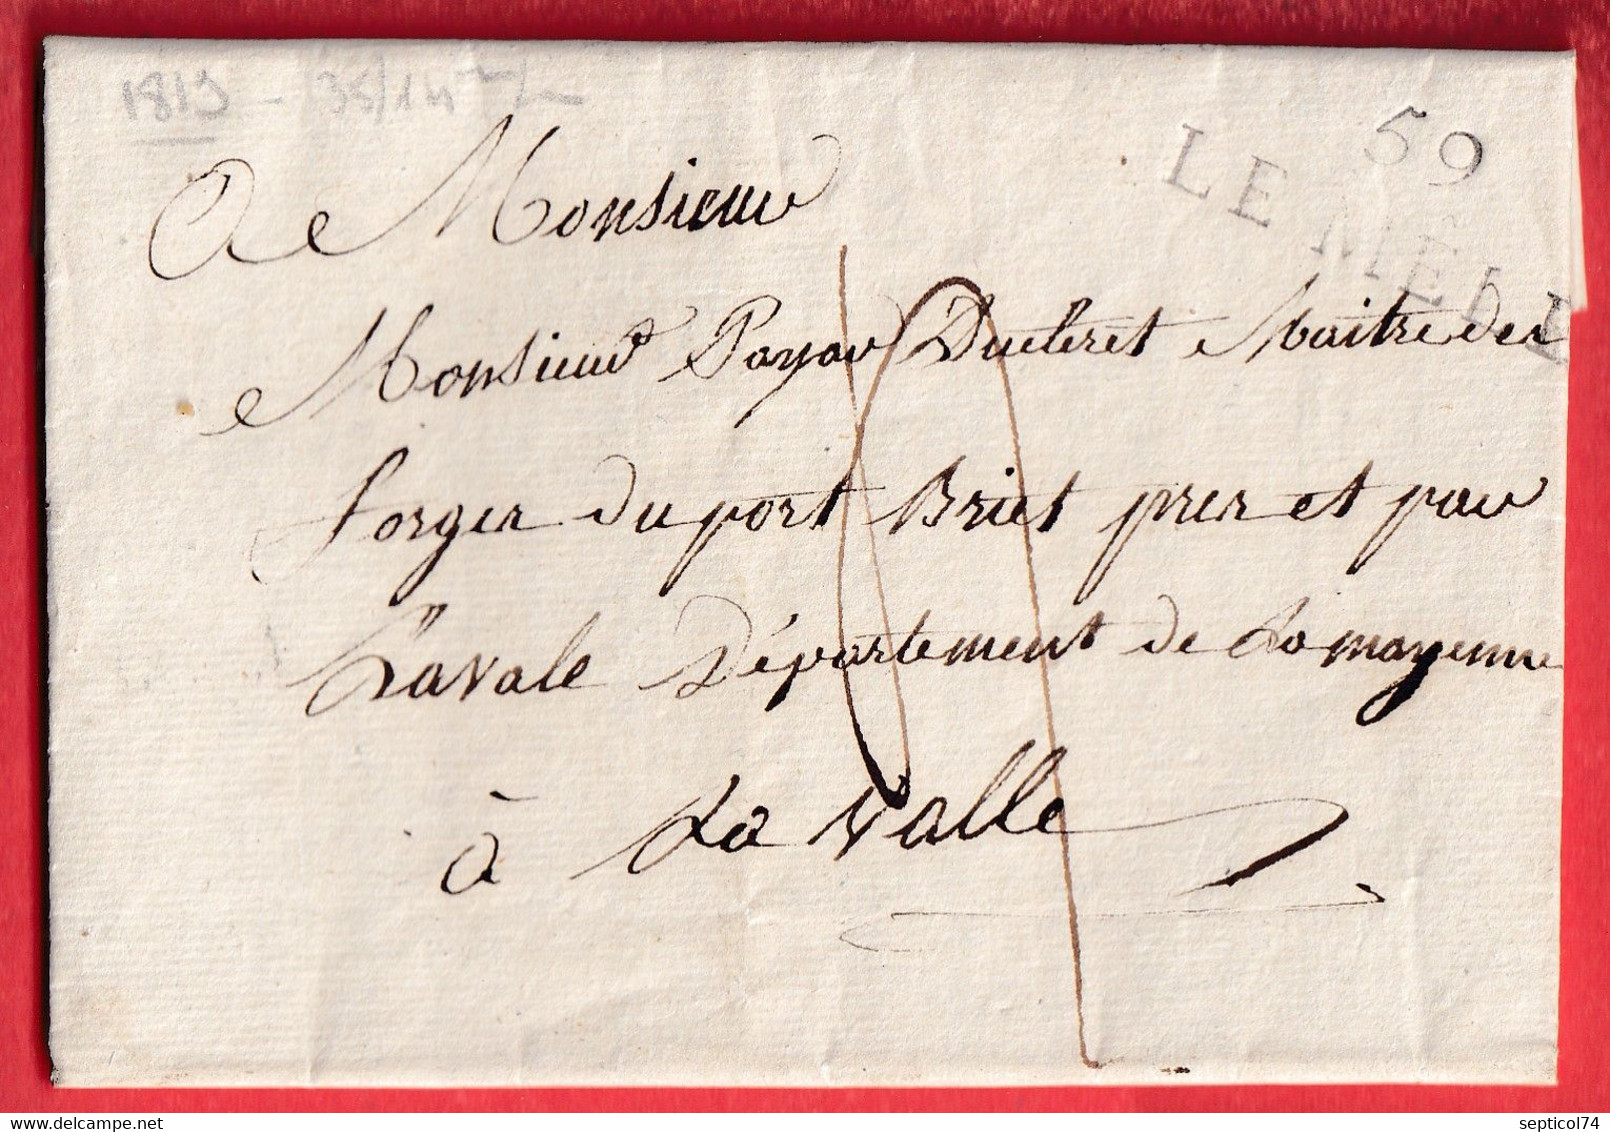 1819 - 35/14
59
LE MELE
A Monsieur
Monsieur Payau Ducleret Maitre des
forges du port Briet pres et par
Lavale Département de La mayenne
à La Valle
septicol74
delcampe.net